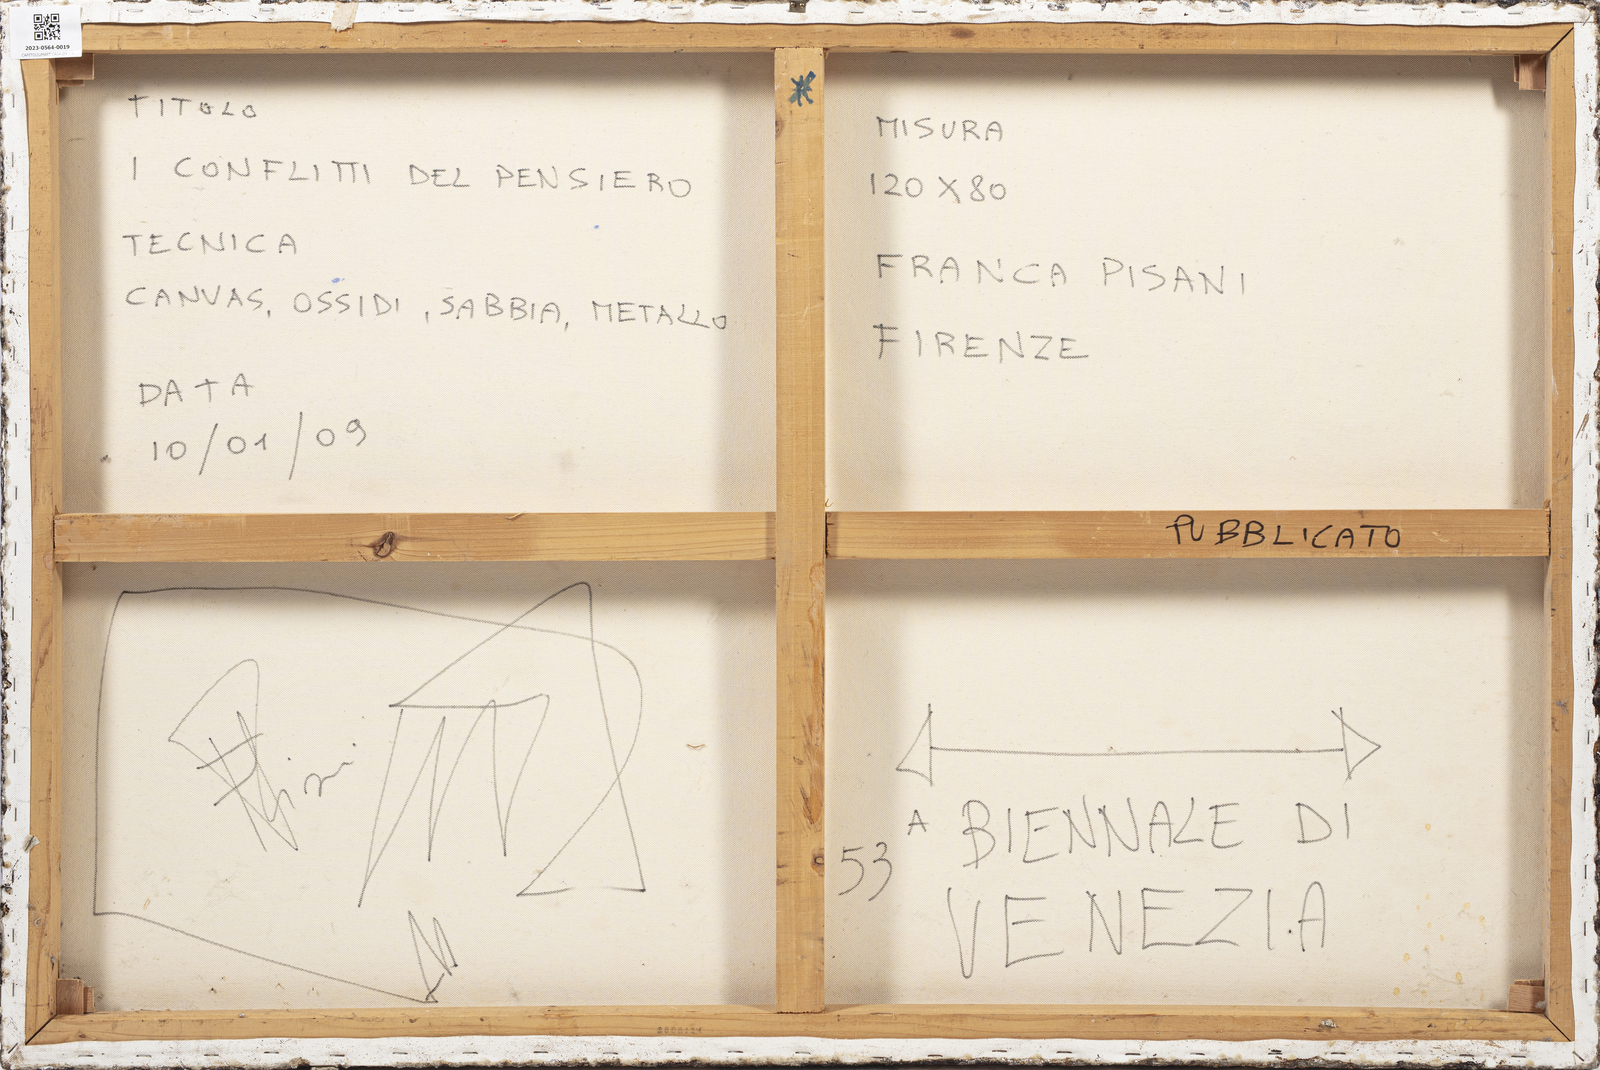 2023-0564-0019
TITOLO
I CONFLITTI DEL PENSIERO
TECNICA
CANVAS, OSSIDI, SABBIA, METALLO
DATA
10/01/09
MISURA
120 X 80
FRANCA PISANI
FIRENZE
PUBBLICATO
53 A BIENNALE DI
VENEZIA